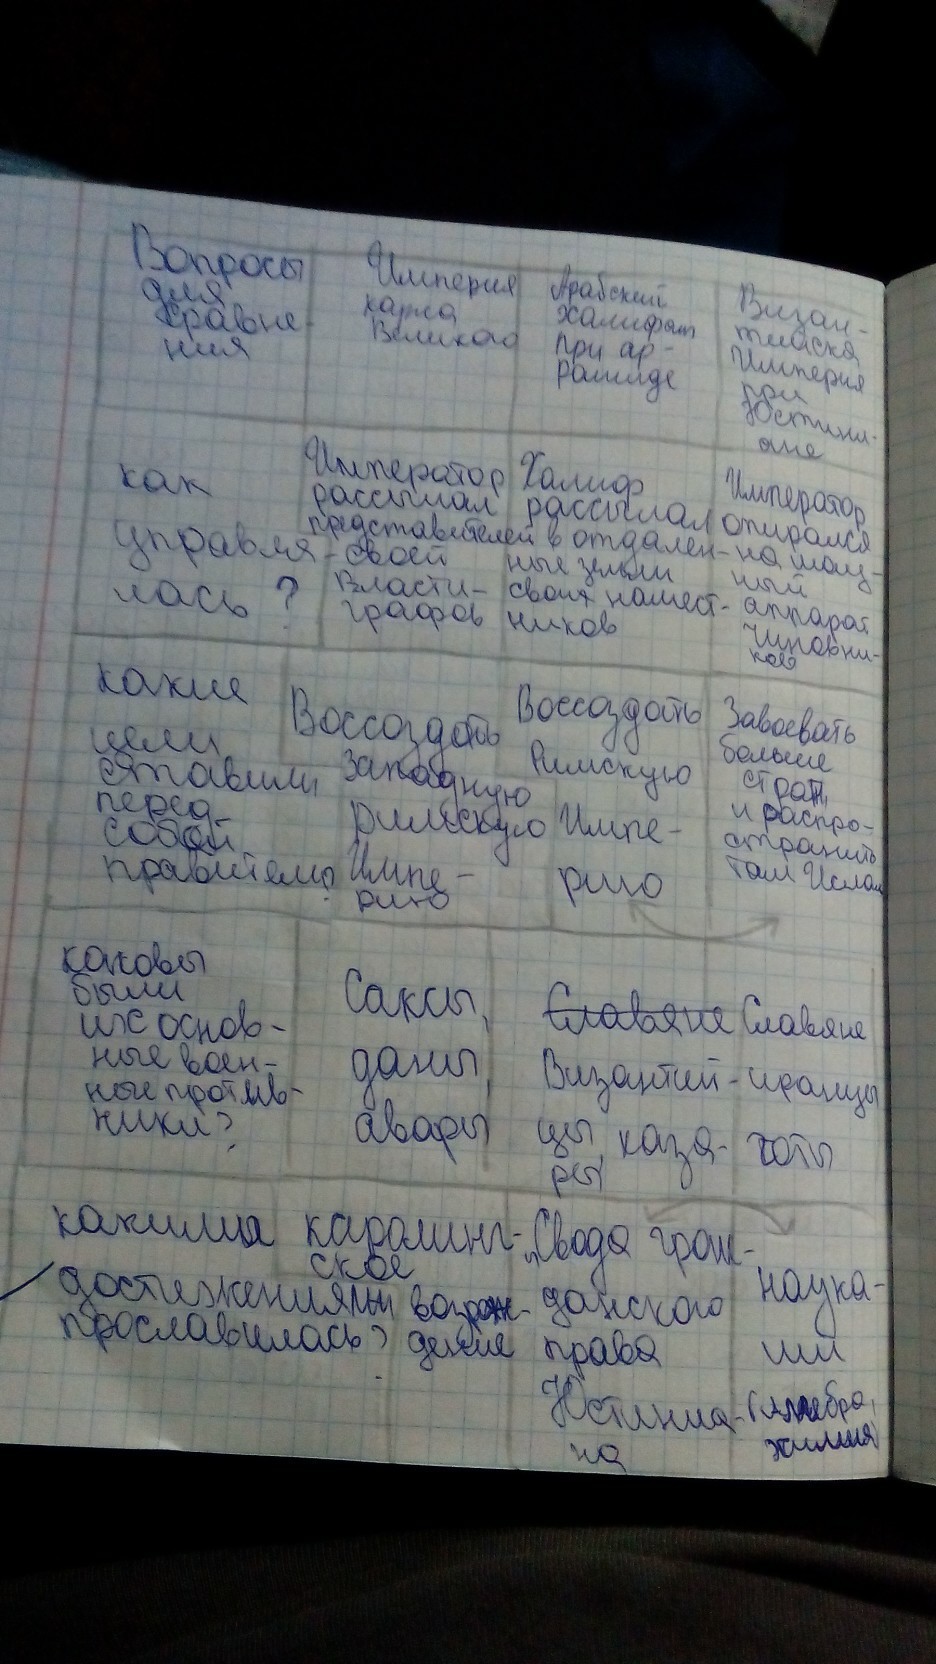 Вопросы
для
сравне-
ния
Империя
карла
Великого
Арабский
Халифат
при ар-
рашиде
Визан-
тийска
Империя
при
Юстини-
ане
как
управля-
лась ?
Император
рассылал
представителей
своей
власти-
графов
Халиф
рассылал
в отдален-
ные земли
своих намест-
ников
Император
опирался
на мощ-
ный
аппарат
чиновни-
ков
какие
цели
ставили
перед
собой
правители?
Воссоздать
западную
римскую
Импе-
рию
Воссоздать
Римскую
Импе-
рию
Завоевать
больше
стран,
и распро-
странить
там Ислам
каковы
были
их основ-
ные воен-
ные против-
ники?
Саксы,
даны,
авары
Славяне
Византий-
цы, хаза-
ры
Славяне
иранцы
готы
какими
достижениями
прославилась?
каролинг-
ское
возрож-
дение
"Свода граж-
данского
права
Юстиниа-
на
наука-
ми
(алгебра,
химия)